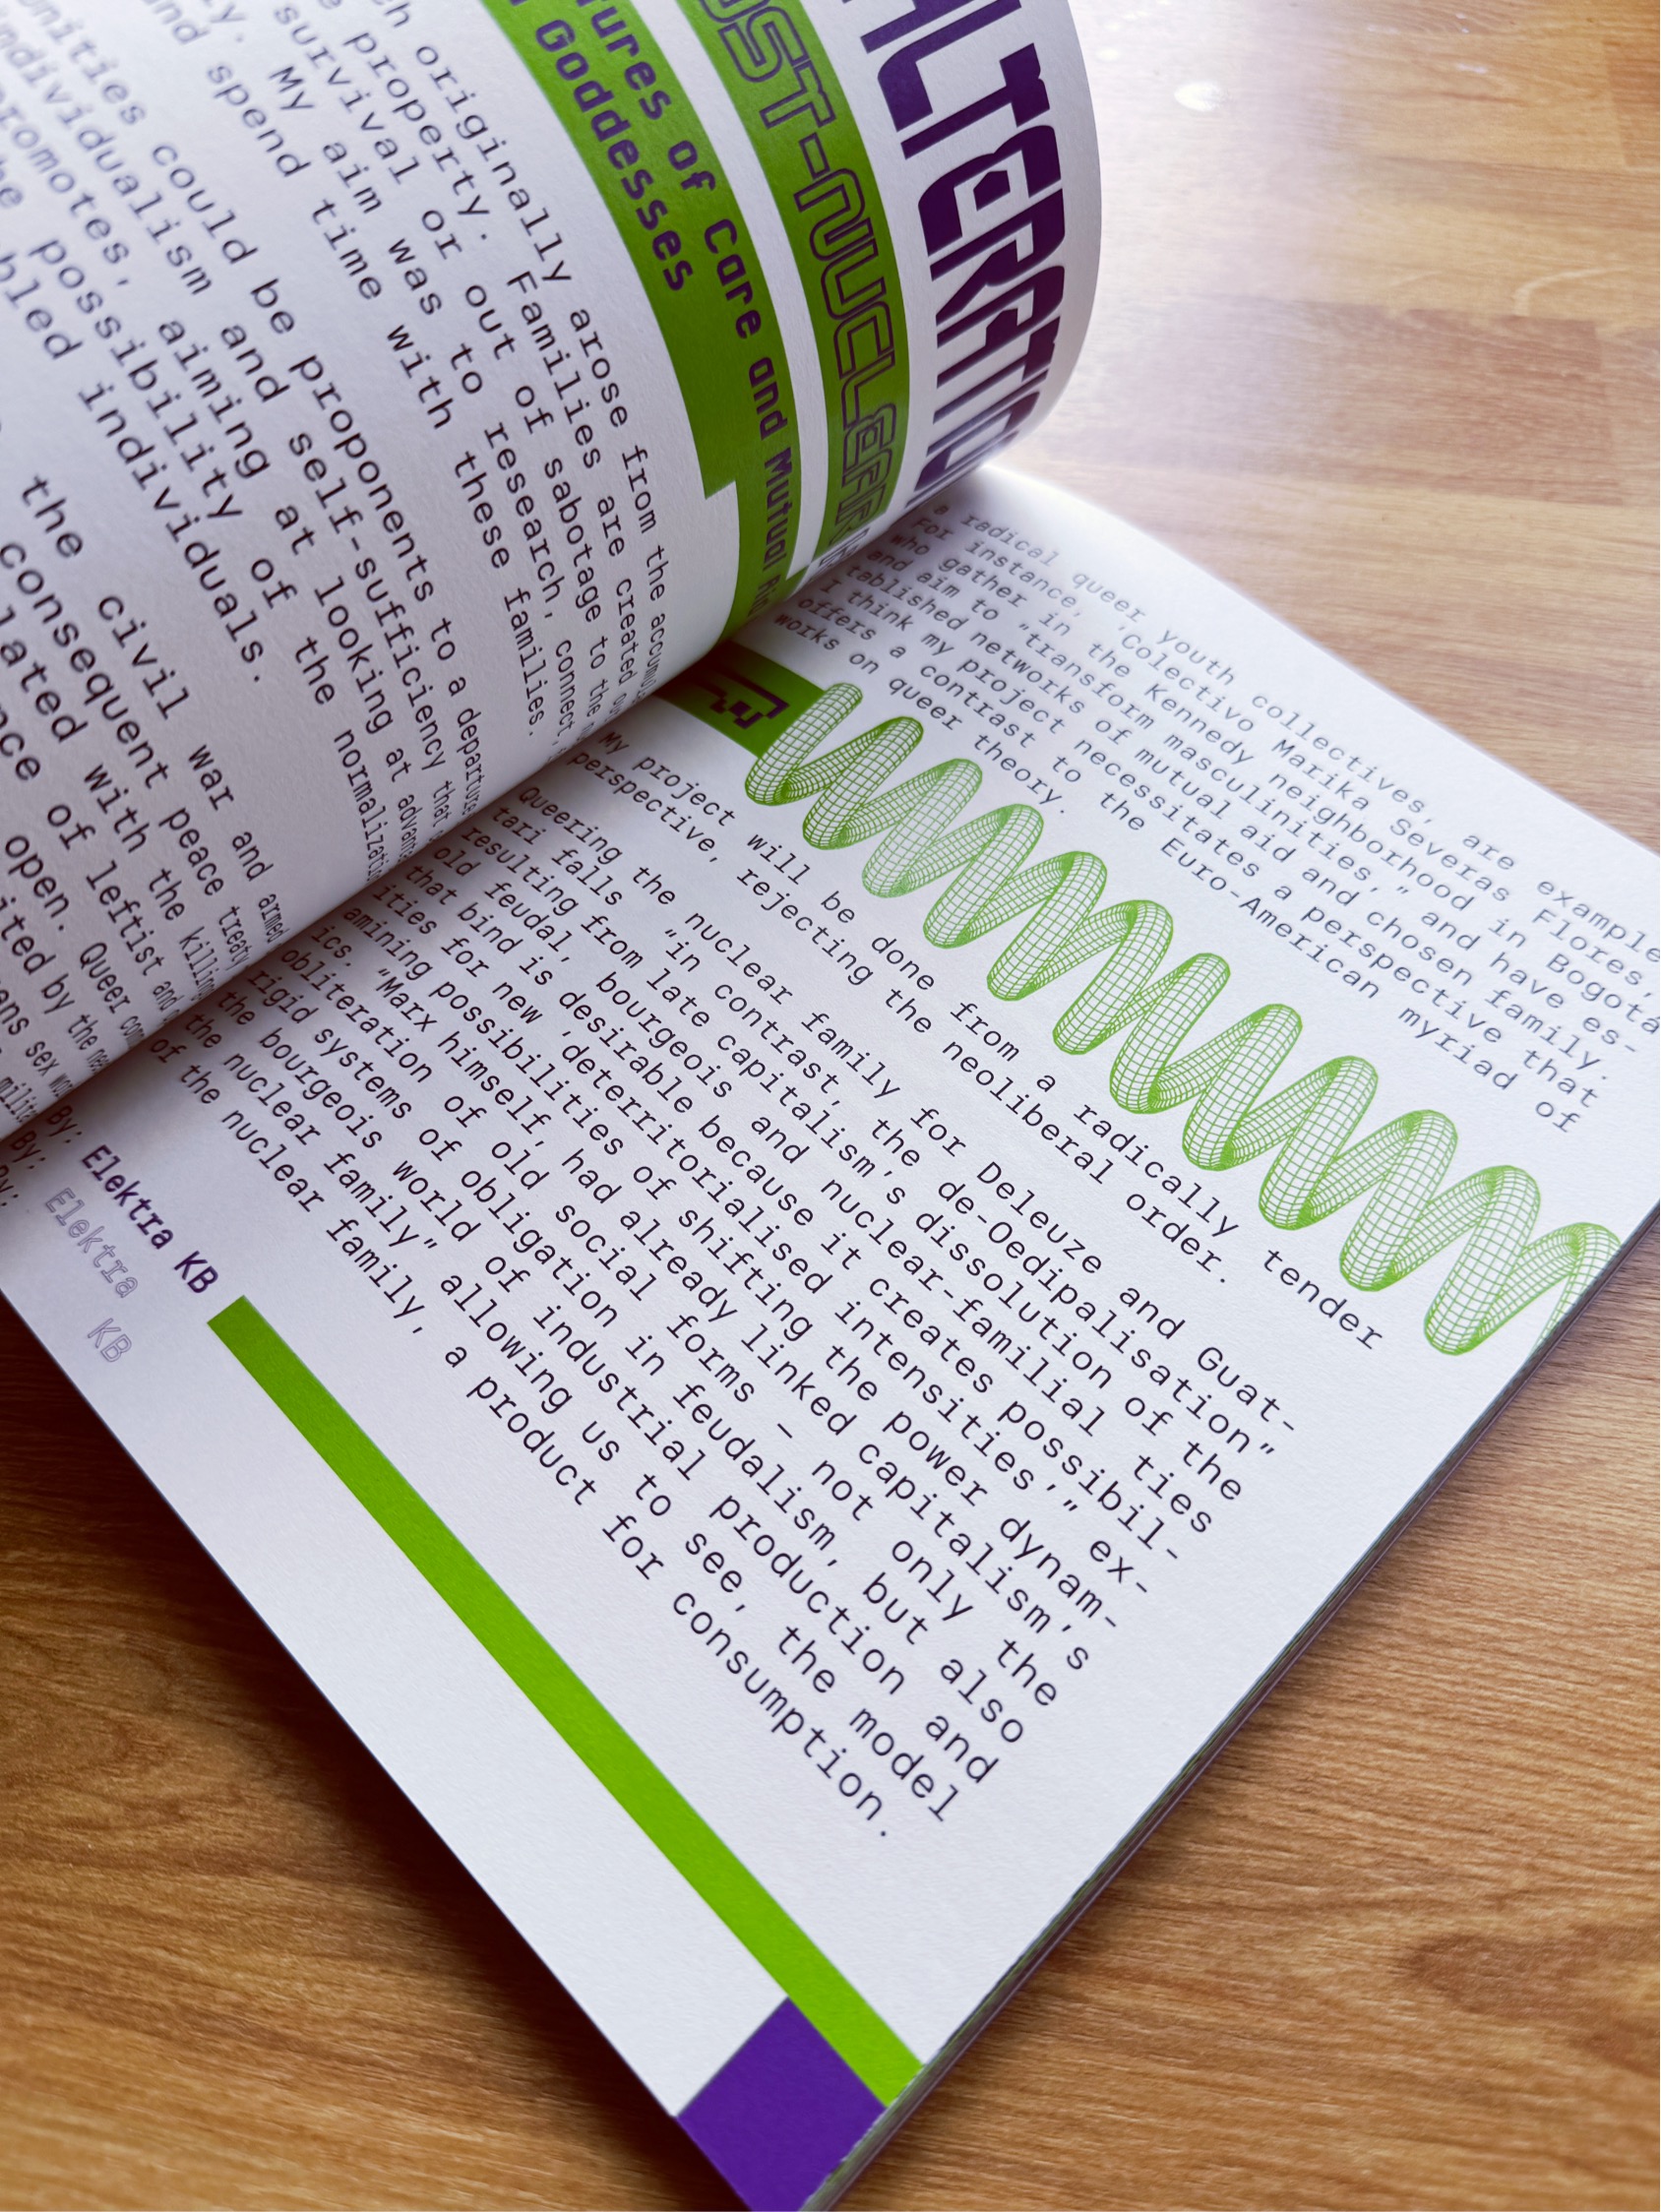 ALTERATIO
OST-NUCLEAR
tures of Care and Mutual
Goddesses
originally arose from the
property. Families are created
survival or out of sabotage to the
My aim was to research, connect,
and spend time with these families.
could be proponents to a departure
individualism and self-sufficiency that
promotes, aiming at looking at
the possibility of the
individuals.
the civil war and armed
consequent peace treaty
with the
of leftist and
open. Queer
by the
sex
a radical queer youth collectives, are example
For instance, "Colectivo Marika Severas Flores,
who gather in the Kennedy neighborhood in Bogotá
and aim to "transform masculinities," and have es-
tablished networks of mutual aid and chosen family.
I think my project necessitates a perspective that
offers a contrast to the Euro-American myriad of
works on queer theory.
My project will be done from a radically tender
perspective, rejecting the neoliberal order.
Queering the nuclear family for Deleuze and Guat-
tari falls "in contrast, the de-Oedipalisation"
resulting from late capitalism's dissolution of the
old feudal, bourgeois and nuclear-familial ties
that bind is desirable because it creates possibil-
ities for new 'deterritorialised intensities'," ex-
amining possibilities of shifting the power dynam-
ics. "Marx himself, had already linked capitalism's
obliteration of old social forms – not only the
rigid systems of obligation in feudalism, but also
the bourgeois world of industrial production and
the nuclear family" allowing us to see, the model
of the nuclear family, a product for consumption.
By: Elektra KB
By: Elektra KB
By: